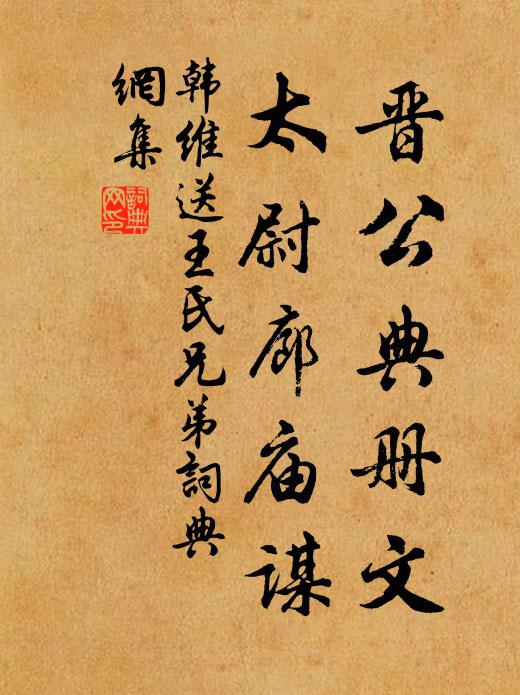 晋公典册文
太尉廊庙谋
韩维送王氏兄弟詞典
網集
詞典
网印